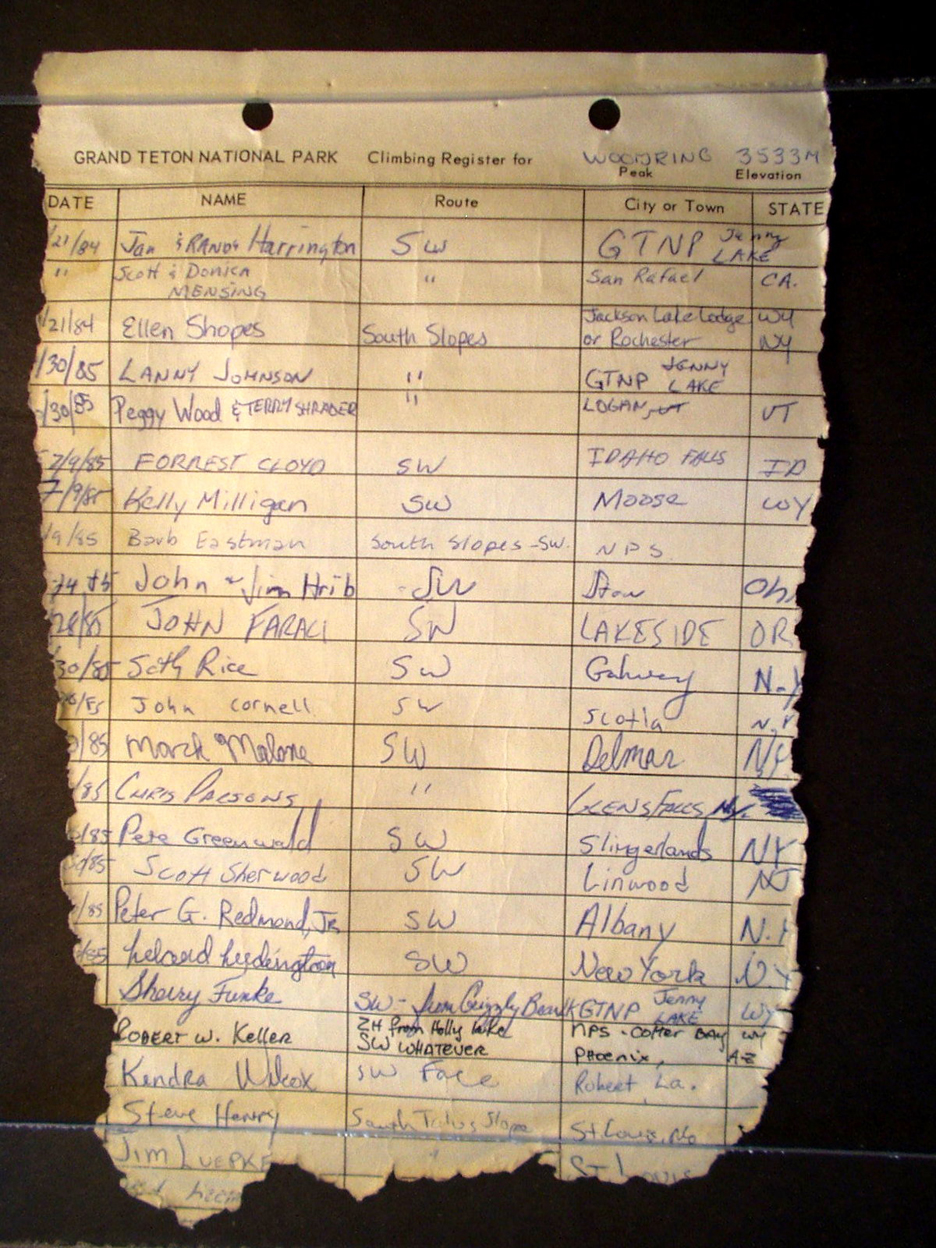 GRAND TETON NATIONAL PARK Climbing Register for WOODRING 3533M
Peak Elevation
DATE NAME Route City or Town STATE
/21/84 Jan & RANDY Harrington SW GTNP Jenny LAKE
" Scott & Donica MENSING " San Rafael CA.
/21/84 Ellen Shopes South Slopes Jackson Lake Lodge WY
or Rochester NY
/30/85 LANNY JOHNSON " GTNP JENNY LAKE
/30/85 Peggy Wood & TERRY SHRADER " LOGAN, UT UT
7/9/85 FORREST CLOYD SW IDAHO FALLS ID
7/9/85 Kelly Milligan SW Moose WY
/9/85 Barb Eastman South Slopes-SW. NPS
John & Jim Hrib SW Stow Oh
JOHN SW LAKESIDE OR
30/85 Seth Rice SW Galway N.Y
/85 John Cornell SW Scotia N.Y
/85 Malone SW Delmar NY
/85 CHRIS PARSONS " GLENS FALLS NY.
/85 Pete Greenwald SW Slingerlands NY
/85 Scott Sherwood SW Linwood NJ
/85 Peter G. Redmond, Jr. SW Albany N.Y
/85 SW New York N.Y
Sherry Funke SW - from Grizzly Bear LK GTNP Jenny LAKE WY
ROBERT W. Keller ZH from Holly Lake NPS - Colter BAY WY
SW WHATEVER Phoenix, AZ
Kendra Wilcox SW Face Robert La.
Steve Henry South Talus Slope St Louis, Mo
Jim LUEPKE " ST LOUIS